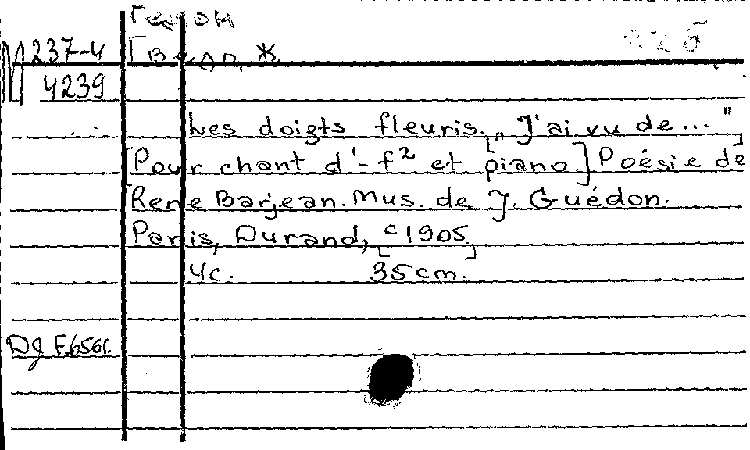 М 237-4
4239
Les doigts fleuris. „J'ai vu de..."
Pour chant d'-f² et [piano] Poésie de
René Barjean. Mus. de J. Guédon.
Paris, Durand, [c 1905]
4c. 35 cm.